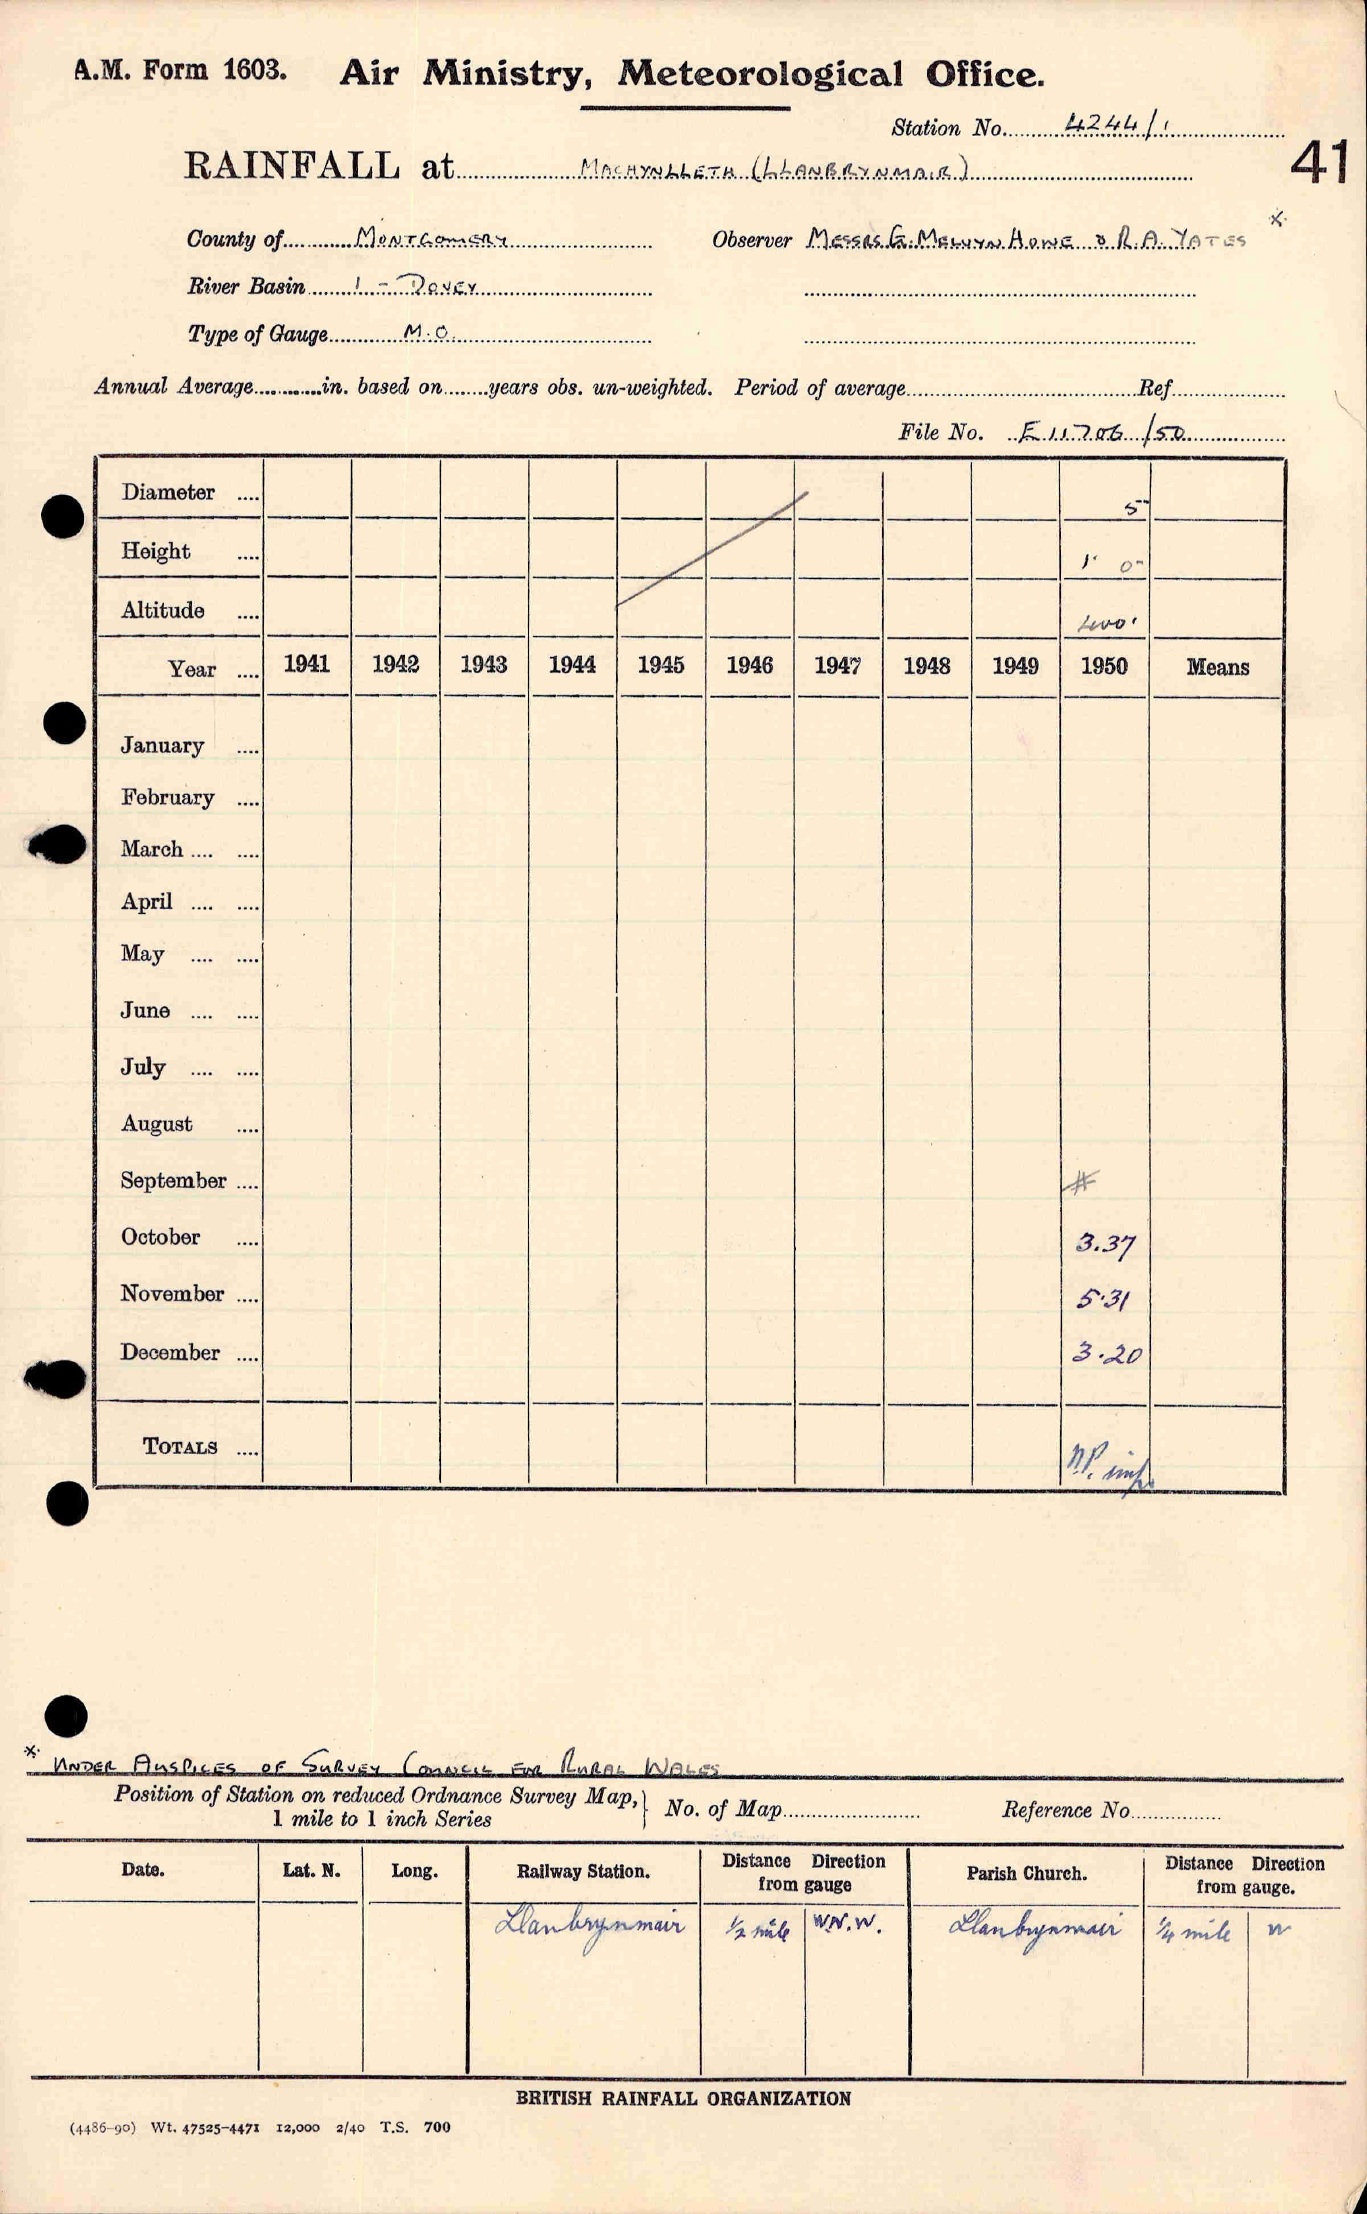 A.M. Form 1603. Air Ministry, Meteorological Office.
Station No. 4244/1
41
RAINFALL at MACHYNLLETH (LLANBRYNMAIR)
County of MONTGOMERY Observer MESSRS G. MELVYN HOWE & R.A. YATES *
River Basin 1 - DOVEY
Type of Gauge M.O.
Annual Average in. based on years obs. un-weighted. Period of average Ref
File No. E 11706/50
Diameter .... 5"
Height .... 1' 0"
Altitude .... 400'
Year .... 1941 1942 1943 1944 1945 1946 1947 1948 1949 1950 Means
January ....
February ....
March .... ....
April .... ....
May .... ....
June .... ....
July .... ....
August ....
September .... #
October .... 3.37
November .... 5.31
December .... 3.20
TOTALS .... N.P.
* UNDER AUSPICES OF SURVEY COUNCIL FOR RURAL WALES
Position of Station on reduced Ordnance Survey Map, } No. of Map Reference No.
1 mile to 1 inch Series
Date. Lat. N. Long. Railway Station. Distance Direction from gauge Parish Church. Distance Direction from gauge.
Llanbrynmair 1/2 mile W.N.W. Llanbrynmair 1/4 mile W
BRITISH RAINFALL ORGANIZATION
(4486-90) Wt. 47525-4471 12,000 2/40 T.S. 700